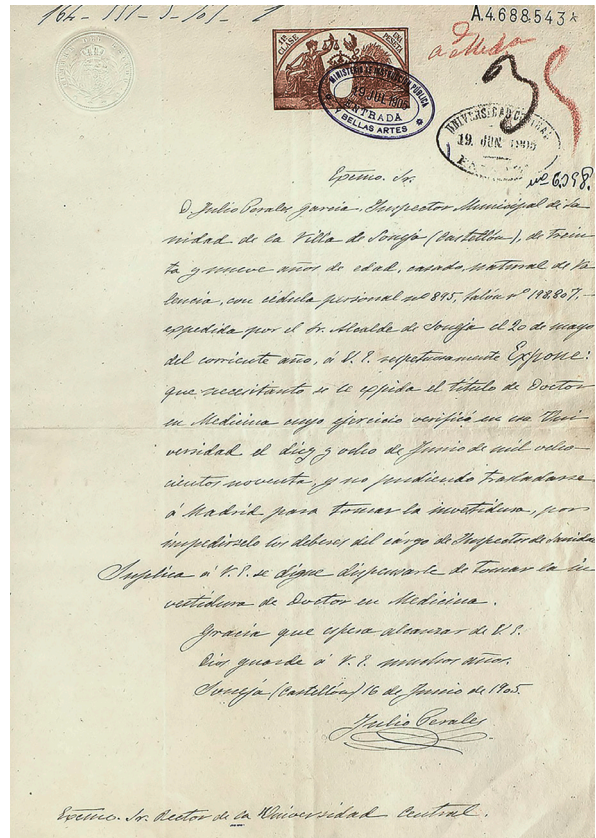 A.4.688.543*
11ª CLASE
UNA PESETA
MINISTERIO DE INSTRUCCIÓN PÚBLICA
19 JUL 1905
ENTRADA
Y BELLAS ARTES
UNIVERSIDAD CENTRAL
19 JUN 1905
nº 6.398.
Excmo. Sr.
D. Julio Perales García, Inspector Municipal de Sa
nidad de la Villa de Soneja (Castellón), de trein
ta y nueve años de edad, casado, natural de Va
lencia, con cédula personal nº 895, talón nº 198.807,
expedida por el Sr. Alcalde de Soneja el 20 de mayo
del corriente año, á V. E. respetuosamente Expone:
que necesitanto se le expida el título de Doctor
en Medicina cuyo ejercicio verificó en esa Uni
versidad el diez y ocho de Junio de mil ocho
cientos noventa, y no pudiendo trasladarse
á Madrid para tomar la investidura, por
impedirselo los deberes del cargo de Inspector de Sanidad
Suplica á V. E. se digne dispensarle de tomar la in
vestidura de Doctor en Medicina.
Gracia que espera alcanzar de V. E.
Dios guarde á V. E. muchos años.
Soneja (Castellón) 16 de Junio de 1905.
Julio Perales
Excmo. Sr. Rector de la Universidad Central.